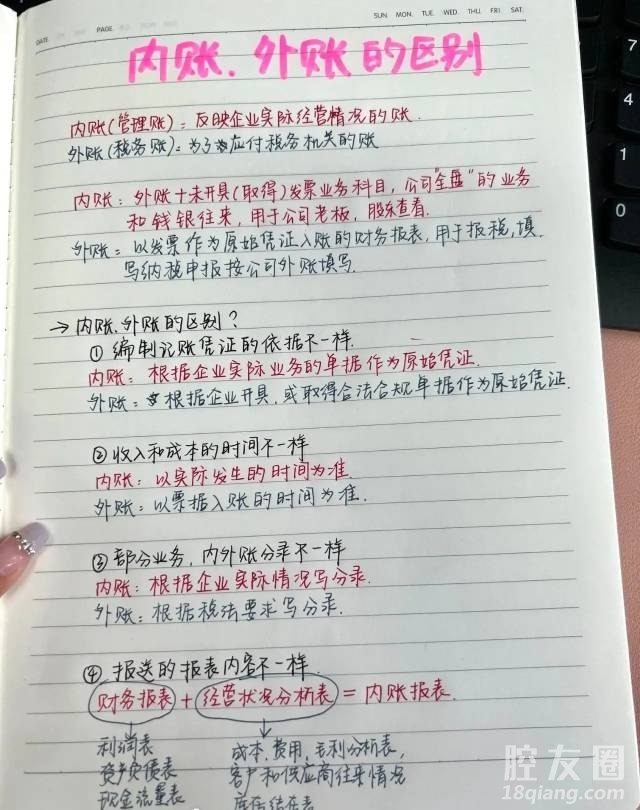 DATE. PAGE. SUN. MON. TUE. WED. THU. FRI. SAT.
内账、外账的区别
内账(管理账): 反映企业实际经营情况的账.
外账(税务账): 为了应付税务机关的账
内账: 外账十未开具(取得)发票业务科目, 公司"全盘"的业务
和钱银往来, 用于公司老板, 股东查看.
外账: 以发票作为原始凭证入账的财务报表, 用于报税, 填
写纳税申报按公司外账填写.
→ 内账、外账的区别?
① 编制记账凭证的依据不一样.
内账: 根据企业实际业务的单据作为原始凭证.
外账: 根据企业开具, 或取得合法合规单据作为原始凭证.
② 收入和成本的时间不一样
内账: 以实际发生的时间为准.
外账: 以票据入账的时间为准.
③ 部分业务, 内外账分录不一样
内账: 根据企业实际情况写分录.
外账: 根据税法要求写分录.
④ 报送的报表内容不一样.
财务报表 + 经营状况分析表 = 内账报表.
利润表 成本、费用、毛利分析表,
资产负债表 客户和供应商往来情况
现金流量表 库存结存表
7
4
1
0
腔友圈
18qiang.com